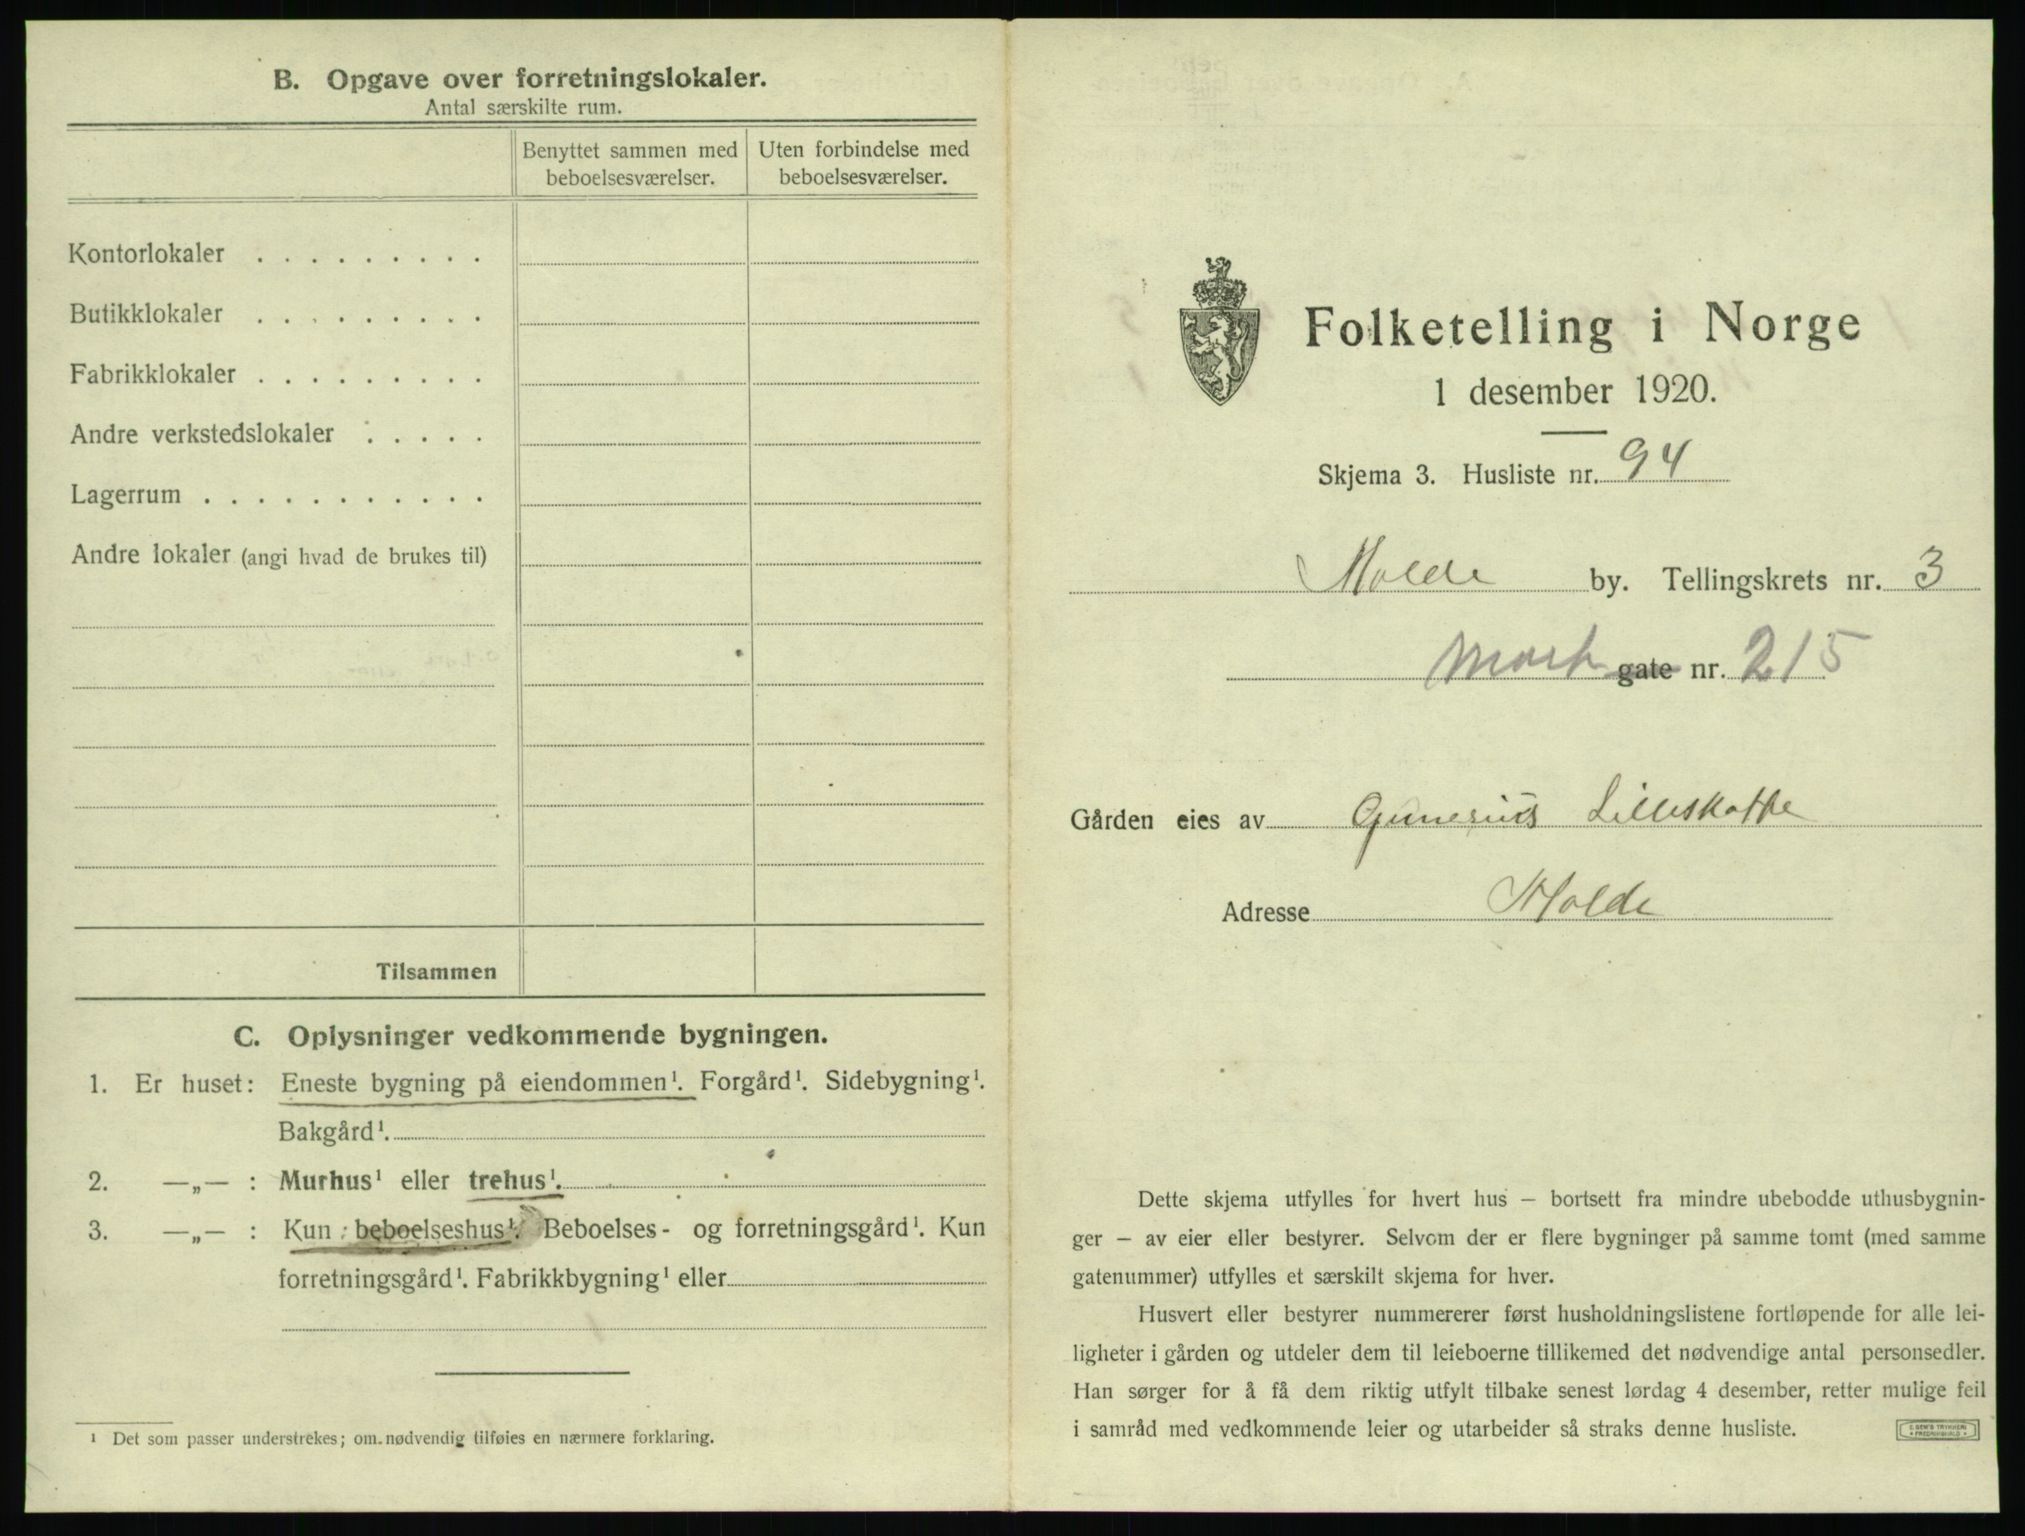 B. Opgave over forretningslokaler.
Antal særskilte rum.
Benyttet sammen med beboelsesværelser.
Uten forbindelse med beboelsesværelser.
Kontorlokaler . . . . . . . . .
Butikklokaler . . . . . . . . .
Fabrikklokaler . . . . . . . . .
Andre verkstedslokaler . . . . .
Lagerrum . . . . . . . . . . .
Andre lokaler (angi hvad de brukes til)
Tilsammen
C. Oplysninger vedkommende bygningen.
1. Er huset: Eneste bygning på eiendommen¹. Forgård¹. Sidebygning¹.
Bakgård¹.
2. —„— : Murhus¹ eller trehus¹.
3. —„— : Kun beboelseshus¹. Beboelses- og forretningsgård¹. Kun
forretningsgård¹. Fabrikkbygning¹ eller
¹ Det som passer understrekes; om nødvendig tilføies en nærmere forklaring.
Folketelling i Norge
1 desember 1920.
Skjema 3. Husliste nr. 94
Molde by. Tellingskrets nr. 3
gate nr. 215
Gården eies av Gunerius
Adresse Molde
Dette skjema utfylles for hvert hus — bortsett fra mindre ubebodde uthusbygnin-
ger — av eier eller bestyrer. Selvom der er flere bygninger på samme tomt (med samme
gatenummer) utfylles et særskilt skjema for hver.
Husvert eller bestyrer nummererer først husholdningslistene fortløpende for alle lei-
ligheter i gården og utdeler dem til leieboerne tillikemed det nødvendige antal personsedler.
Han sørger for å få dem riktig utfylt tilbake senest lørdag 4 desember, retter mulige feil
i samråd med vedkommende leier og utarbeider så straks denne husliste.